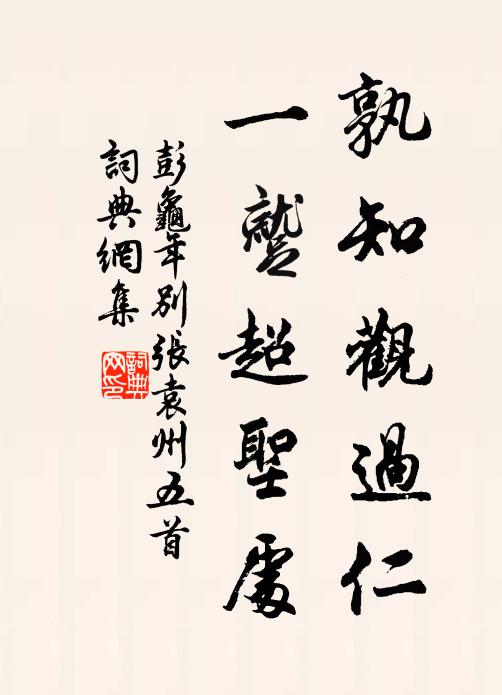 孰知觀過仁
一蹵超聖處
彭龜年別張袁州五首
詞典網集
詞典网印